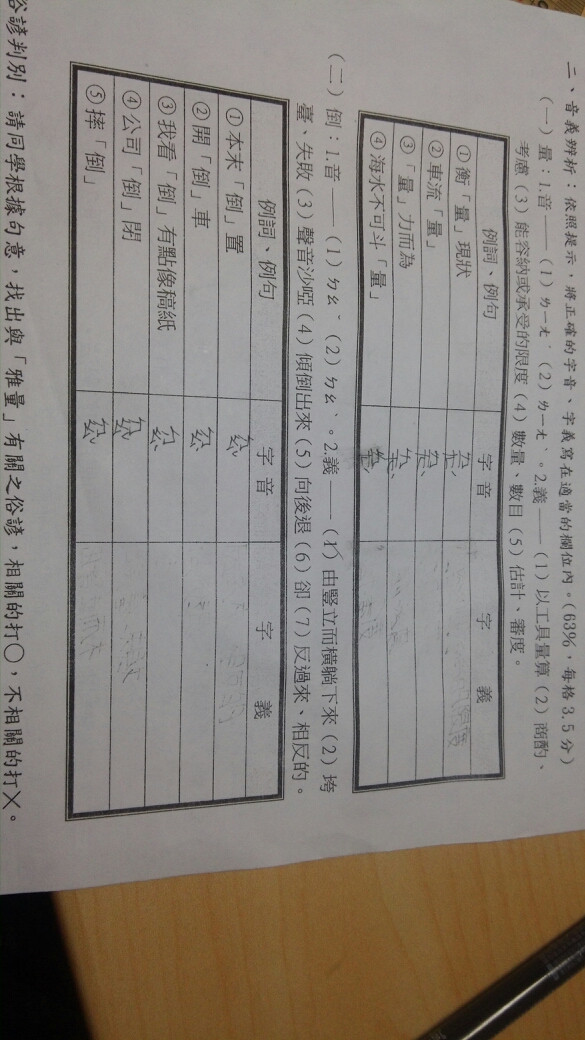 二、音義辨析：依照提示，將正確的字音、字義寫在適當的欄位內。(63%，每格3.5分)
(一) 量：1.音——(1) ㄌㄧㄤˊ (2) ㄌㄧㄤˋ。2.義——(1) 以工具量算 (2) 商酌、
考慮 (3) 能容納或承受的限度 (4) 數量、數目 (5) 估計、審度。
例詞、例句 字音 字義
① 衡「量」現狀
② 車流「量」
③「量」力而為
④ 海水不可斗「量」
(二) 倒：1.音——(1) ㄉㄠˇ (2) ㄉㄠˋ。2.義——(1) 由豎立而橫躺下來 (2) 垮
臺、失敗 (3) 聲音沙啞 (4) 傾倒出來 (5) 向後退 (6) 卻 (7) 反過來、相反的。
例詞、例句 字音 字義
① 本末「倒」置 ㄉㄠˋ
② 開「倒」車 ㄉㄠˋ
③ 我看「倒」有點像稿紙 ㄉㄠˋ
④ 公司「倒」閉
⑤ 摔「倒」
俗諺判別：請同學根據句意，找出與「雅量」有關之俗諺，相關的打○，不相關的打╳。